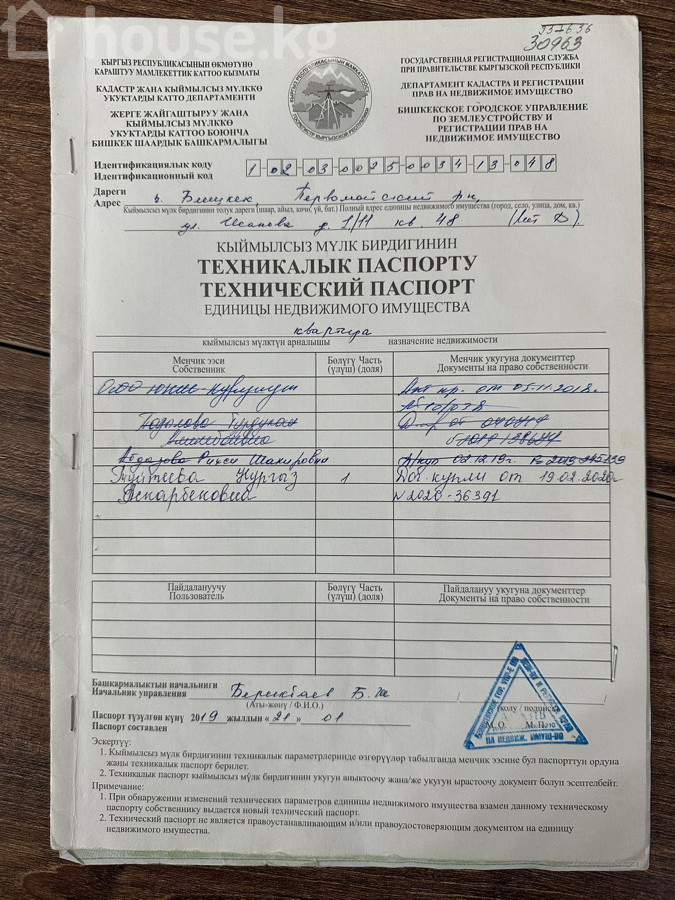 house.kg
33-Б-36
30963
КЫРГЫЗ РЕСПУБЛИКАСЫНЫН ӨКМӨТҮНӨ
КАРАШТУУ МАМЛЕКЕТТИК КАТТОО КЫЗМАТЫ
КАДАСТР ЖАНА КЫЙМЫЛСЫЗ МҮЛККӨ
УКУКТАРДЫ КАТТО ДЕПАРТАМЕНТИ
ЖЕРГЕ ЖАЙГАШТЫРУУ ЖАНА
КЫЙМЫЛСЫЗ МҮЛККӨ
УКУКТАРДЫ КАТТОО БОЮНЧА
БИШКЕК ШААРДЫК БАШКАРМАЛЫГЫ
ГОСУДАРСТВЕННАЯ РЕГИСТРАЦИОННАЯ СЛУЖБА
ПРИ ПРАВИТЕЛЬСТВЕ КЫРГЫЗСКОЙ РЕСПУБЛИКИ
ДЕПАРТАМЕНТ КАДАСТРА И РЕГИСТРАЦИИ
ПРАВ НА НЕДВИЖИМОЕ ИМУЩЕСТВО
БИШКЕКСКОЕ ГОРОДСКОЕ УПРАВЛЕНИЕ
ПО ЗЕМЛЕУСТРОЙСТВУ И
РЕГИСТРАЦИИ ПРАВ НА
НЕДВИЖИМОЕ ИМУЩЕСТВО
Идентификациялык коду
Идентификационный код
1-02-03-0025-0034-13-048
Дареги
Адрес г. Бишкек, Первомайский р-н,
Кыймылсыз мүлк бирдигинин толук дареги (шаар, айыл, көчө, үй, бат.) Полный адрес единицы недвижимого имущества (город, село, улица, дом, кв.)
ул. Исанова д. 1/11 кв. 48 (Лит Д).
КЫЙМЫЛСЫЗ МҮЛК БИРДИГИНИН
ТЕХНИКАЛЫК ПАСПОРТУ
ТЕХНИЧЕСКИЙ ПАСПОРТ
ЕДИНИЦЫ НЕДВИЖИМОГО ИМУЩЕСТВА
квартира
кыймылсыз мүлктүн арналышы назначение недвижимости
Менчик ээси Бөлүгү Часть Менчик укугуна документтер
Собственник (үлүш) (доля) Документы на право собственности
ОсОО Акт пр. от 05.11.2018г.
Шакировна п/куп 02.12.19г.
Нургыз 1 Дог. купли от 19.02.2020г
Аскарбековна N2020-36391
Пайдалануучу Бөлүгү Часть Пайдалануу укугуна документтер
Пользователь (үлүш) (доля) Документы на право собственности
Башкармалыктын начальниги
Начальник управления
(Аты-жөнү / Ф.И.О.) (колу / подпись)
Паспорт түзүлгөн күнү 2019 жылдын «21» 01 М.О. М.П.
Паспорт составлен
НА НЕДВИЖ. ИМУЩ-ВО
Эскертүү:
1. Кыймылсыз мүлк бирдигинин техникалык параметрлеринде өзгөрүүлөр табылганда менчик ээсине бул паспорттун ордуна
жаңы техникалык паспорт берилет.
2. Техникалык паспорт кыймылсыз мүлк бирдигинин укугун аныктоочу жана/же укугун ырастоочу документ болуп эсептелбейт.
Примечание:
1. При обнаружении изменений технических параметров единицы недвижимого имущества взамен данному техническому
паспорту собственнику выдается новый технический паспорт.
2. Технический паспорт не является правоустанавливающим и/или правоудостоверяющим документом на единицу
недвижимого имущества.